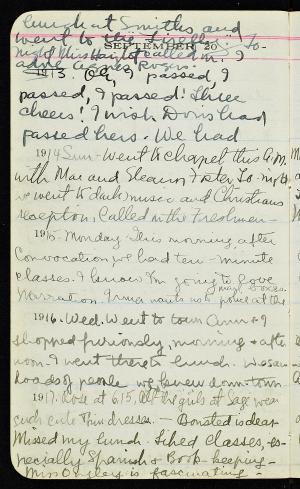 lunch at Smiths, and
went to the
SEPTEMBER 20
night Miss called me. I
1913. Oh, I passed, I
passed, I passed! Three
cheers! I wish Doris had
passed hers. We had
1914 Sun - Went to chapel this A.M.
with Mae and Eleanor Foster. To-night
we went to dark music and Christians
reception. Called on the Freshmen -
1915. Monday - This morning, after
Convocation we had ten-minute
classes. I know I'm going to love
Narration. Irma wants us to
1916. Wed. Went to town Ann & I
shopped furiously, morning & after
noon. I went there to lunch. We saw
loads of people we knew down-town
1917. Rose at 6:15. All the girls at Sage wear
such cute dresses. -
Missed my lunch. Sched classes, es-
pecially Spanish & Book-keeping -
Miss is fascinating -